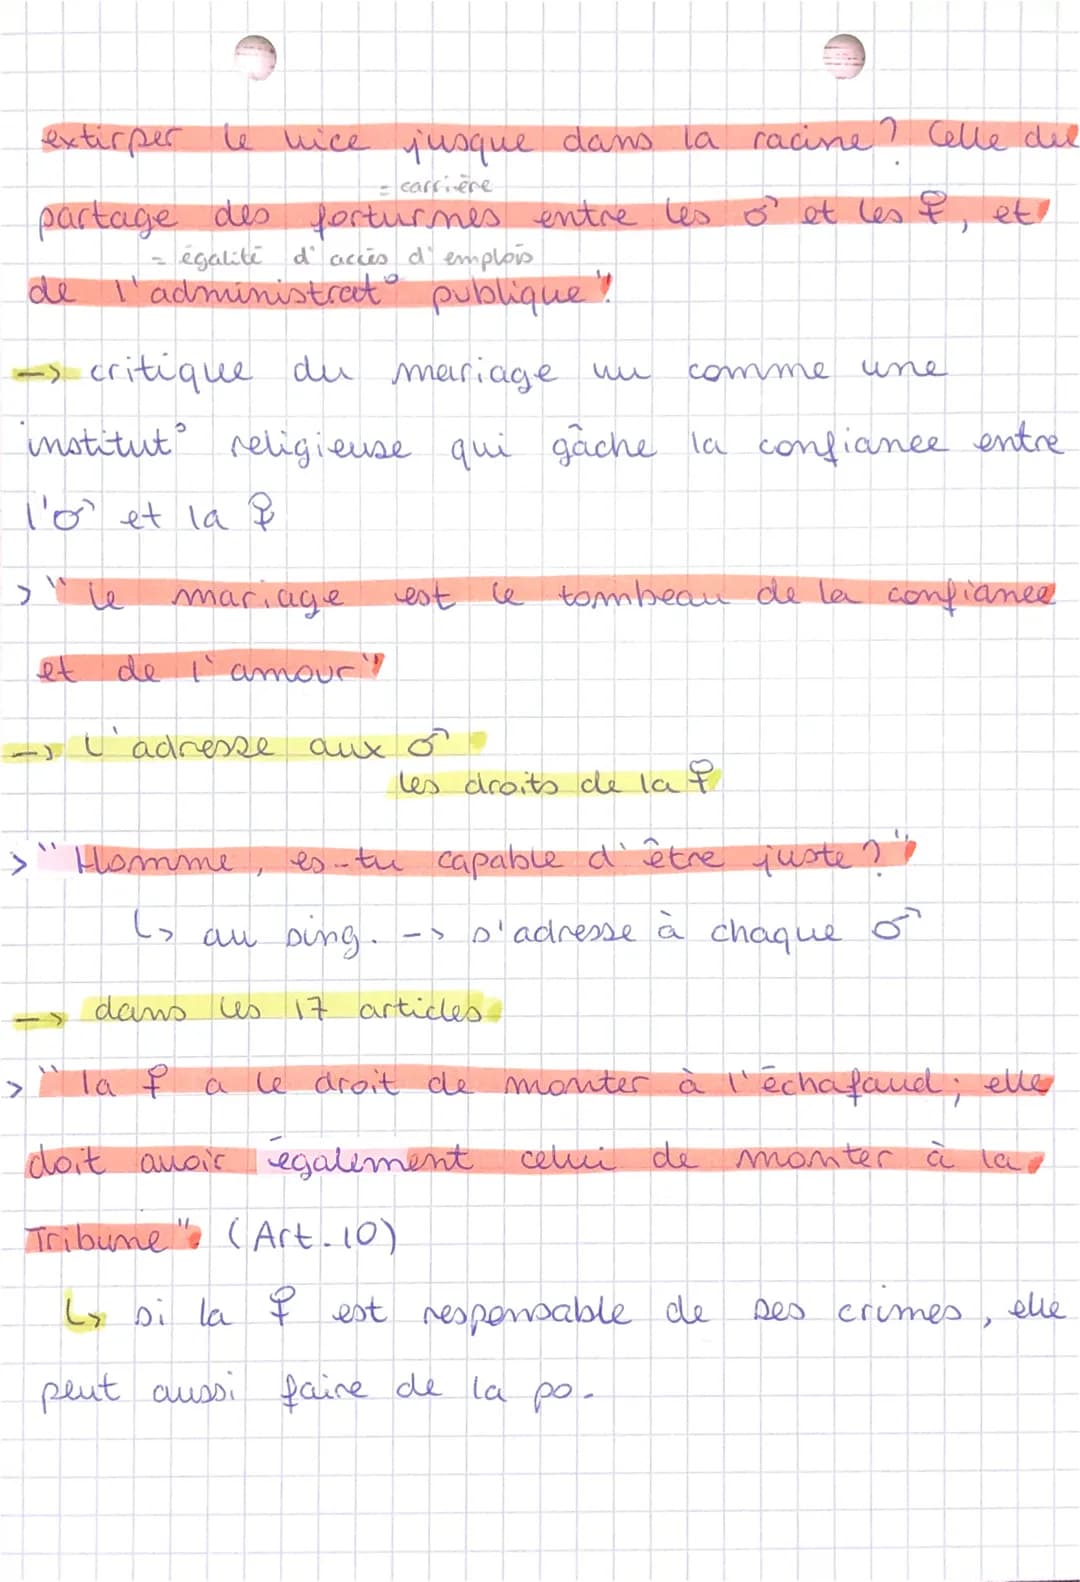 extirper le vice jusque dans la racine ? Celle du
= carrière
partage des forturmes entre les ♂ et les ♀, et
= égalité d'accès d'emplois
de l'administrat° publique".
-> critique du mariage vu comme une
institut° religieuse qui gâche la confiance entre
l'♂ et la ♀
> "le mariage est le tombeau de la confiance
et de l'amour"
-> L'adresse aux ♂
les droits de la ♀
> "Homme, es-tu capable d'être juste ?"
↳ au sing. --> s'adresse à chaque ♂
-> dans les 17 articles
> "la ♀ a le droit de monter à l'échafaud ; elle
doit avoir également celui de monter à la
Tribune" (Art. 10)
↳ si la ♀ est responsable de ses crimes, elle
peut aussi faire de la po.